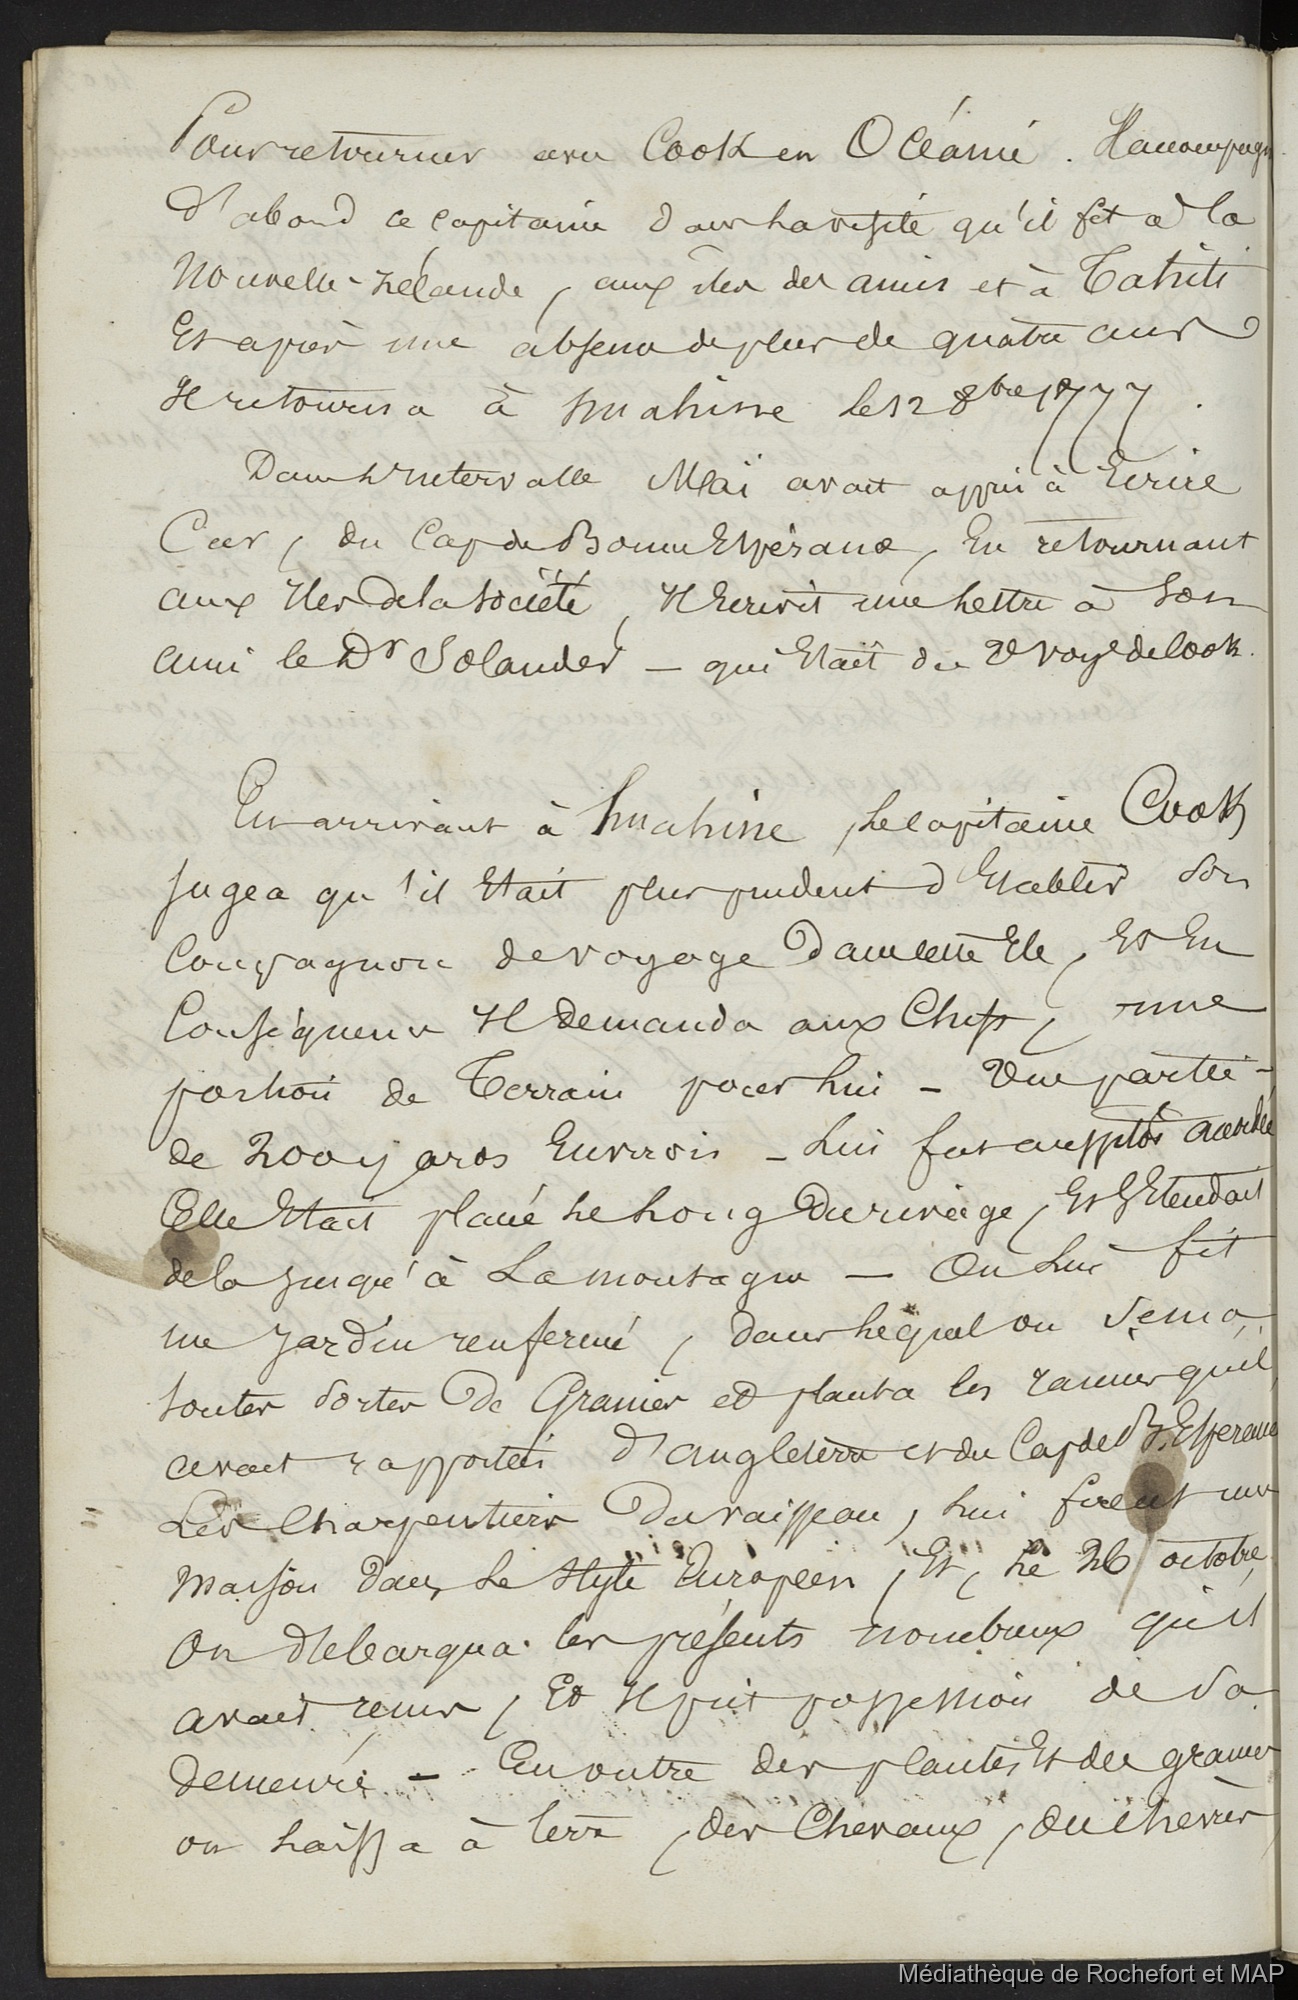 Pour retourner avec Cook en Océanie. Il accompagna
d'abord ce capitaine dans la visite qu'il fit à la
Nouvelle-Zélande, aux îles des amis et à Tahiti
Et après une absence de plus de quatre ans
Il retourna à Huahine le 12 8bre 1777.
Dans l'Intervalle Maï avait appris à Ecrire
Car, du Cap de Bonne Espérance, En retournant
aux Iles de la Société, Il Ecrivit une lettre à son
ami le Dr Solander — qui Etait du 2e voye de Cook.
En arrivant à Huahine, le Capitaine Cook
jugea qu'il Etait plus prudent d'Etablir son
Compagnon de voyage dans cette Ile, Et En
Conséquence Il demanda aux Chefs, une
portion de Terrain pour lui — Une partie —
de 200 yards Environ — lui fut aussitôt accordée
Elle Etait placée le long du rivage, Et s'Etendait
de là jusqu'à la montagne — On lui fit
un jardin renfermé, dans lequel on sema,
toutes sortes de Graines et planta les racines qu'il
avait rapportées d'angleterre et du Cap de B. Esperance
Les Charpentiers du vaisseau, lui firent une
maison dans le style Européen, Et, le 26 octobre,
On débarqua les présents nombreux qu'il
avait reçus, Et Il prit possession de sa
demeure — En outre des plantes Et des graines
on laissa à terre, des Chevaux, des chèvres
Médiathèque de Rochefort et MAP